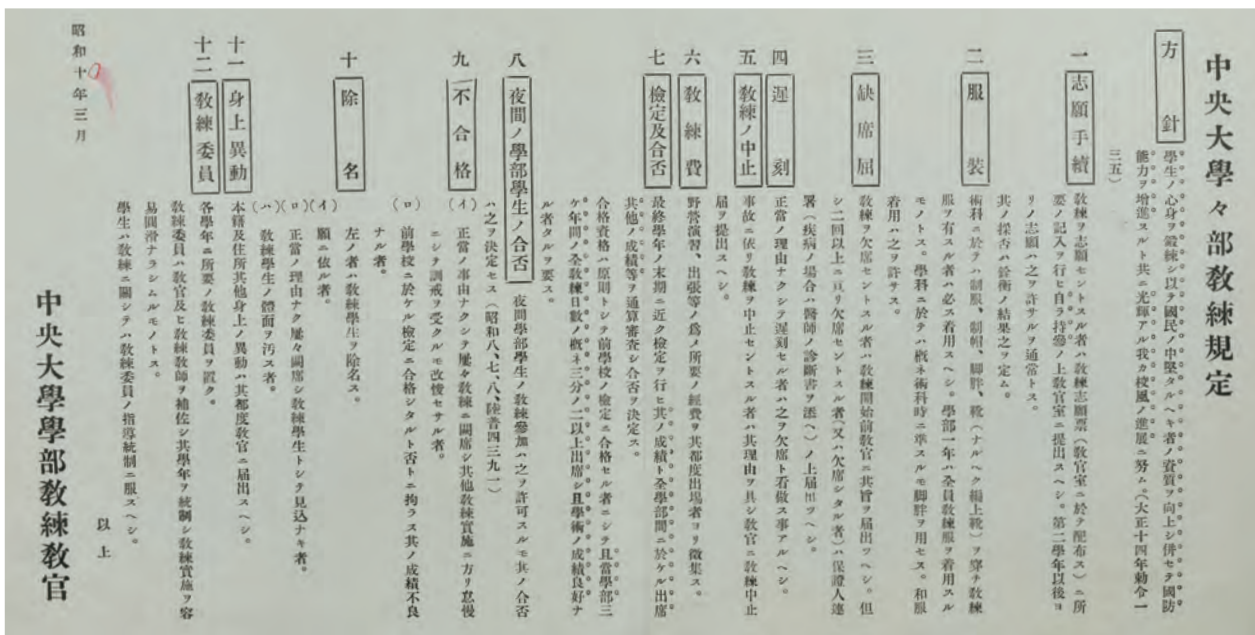 中央大學々部教練規定
方針
學生ノ心身ヲ鍛練シ以テ國民ノ中堅タルヘキ者ノ資質ヲ向上シ併セテ國防
能力ヲ增進スルト共ニ光輝アル我カ校風ノ進展ニ努ム。(大正十四年勅令一
三五)
一 志願手續
教練ヲ志願セントスル者ハ教練志願票(教官室ニ於テ配布ス)ニ所
要ノ記入ヲ行ヒ自ラ持參ノ上教官室ニ提出スヘシ。第二學年以後ヨ
リノ志願ハ之ヲ許サルヲ通常トス。
其ノ採否ハ銓衡ノ結果之ヲ定ム。
二 服裝
術科ニ於テハ制服、制帽、脚胖、靴(ナルヘク編上靴)ヲ穿チ教練
服ヲ有スル者ハ必ス着用スヘシ。學部一年ハ全員教練服ヲ着用スル
モノトス。學科ニ於テハ概ネ術科時ニ準スルモ脚胖ヲ用セス。和服
着用ハ之ヲ許サス。
三 缺席屆
教練ヲ欠席セントスル者ハ教練開始前敎官ニ其旨ヲ屆出ツヘシ。但
シ二回以上ニ亘リ欠席セントスル者(又ハ欠席シタル者)ハ保證人連
署(疾病ノ場合ハ醫師ノ診斷書ヲ添ヘ)ノ上屆出ツヘシ。
四 遲刻
正當ノ理由ナクシテ遲刻セル者ハ之ヲ欠席ト看做ス事アルヘシ。
五 教練ノ中止
事故ニ依リ教練ヲ中止セントスル者ハ其理由ヲ具シ教官ニ教練中止
屆ヲ提出スヘシ。
六 教練費
野營演習、出張等ノ爲メ所要ノ經費ヲ其都度出場者ヨリ徵集ス。
七 檢定及合否
最終學年ノ末期ニ近ク檢定ヲ行ヒ其ノ成績ト全學部間ニ於ケル出席
其他ノ成績等ヲ通算審査シ合否ヲ決定ス。
合格資格ハ原則トシテ前學校ノ檢定ニ合格セル者ニシテ且當學部三
ケ年間ノ全教練日數ノ概ネ三分ノ二以上出席シ且學術ノ成績良好ナ
ル者タルヲ要ス。
八 夜間ノ學部學生ノ合否
夜間學部學生ノ教練參加ハ之ヲ許可スルモ其ノ合否
ハ之ヲ決定セス(昭和八、七、八、陸普四三九一)
九 不合格
(イ) 正當ノ事由ナクシテ屢々教練ニ闕席シ其他教練實施ニ方リ怠慢
ニシテ訓戒ヲ受クルモ改悛セサル者。
(ロ) 前學校ニ於ケル檢定ニ合格シタルト否トニ拘ラス其ノ成績不良
ナル者。
十 除名
左ノ者ハ教練學生ヲ除名ス。
(イ) 願ニ依ル者。
(ロ) 正當ノ理由ナク屢々闕席シ教練學生トシテ見込ナキ者。
(ハ) 教練學生ノ體面ヲ汚ス者。
十一 身上異動
本籍及住所其他身上ノ異動ハ其都度教官ニ屆出スヘシ。
十二 教練委員
各學年ニ所要ノ教練委員ヲ置ク。
教練委員ハ教官及ヒ教練教師ヲ補佐シ其學年ヲ統制シ教練實施ヲ容
易圓滑ナラシムルモノトス。
學生ハ教練ニ關シテハ教練委員ノ指導統制ニ服スヘシ。
以上
昭和十年三月
中央大學學部教練教官